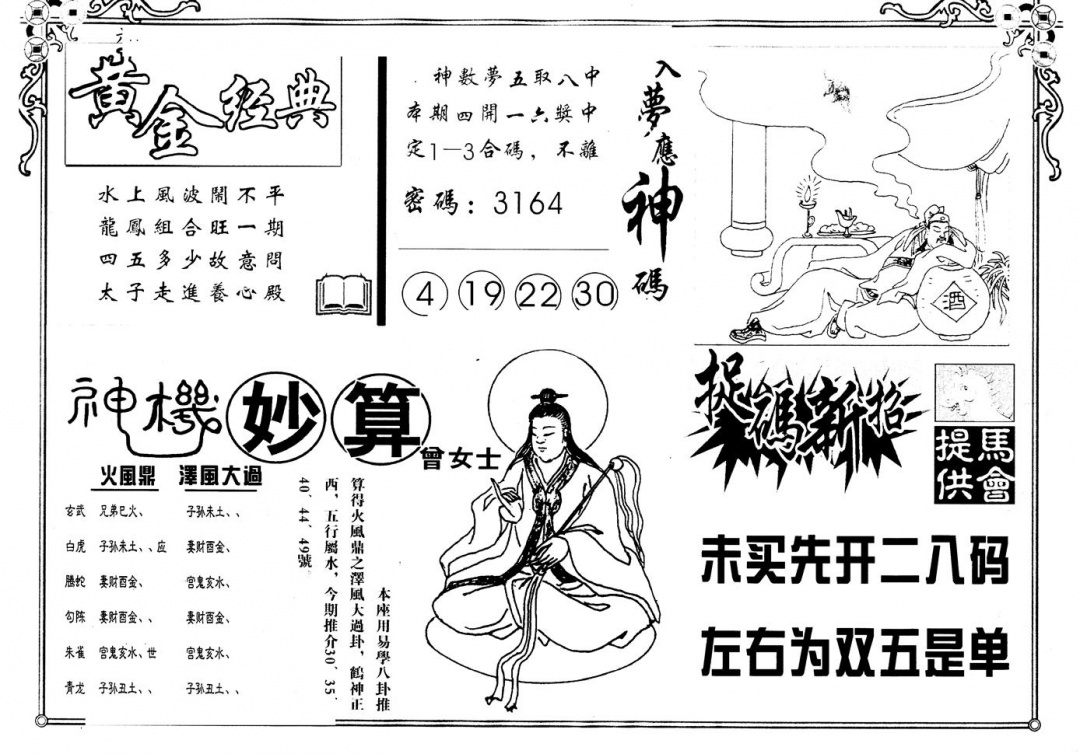 黃金經典
水上風波鬧不平
龍鳳組合旺一期
四五多少故意問
太子走進養心殿
神數夢五取八中
本期四開一六獎中
定1—3合碼，不離
密碼：3164
4 19 22 30
入夢應神碼
酒
神機妙算
曾女士
火風鼎 澤風大過
玄武 兄弟巳火、 子孙未土、、
白虎 子孙未土、、应 妻财酉金、
腾蛇 妻财酉金、 官鬼亥水、
勾陈 妻财酉金、、 妻财酉金、
朱雀 官鬼亥水、世 官鬼亥水、
青龙 子孙丑土、、 子孙丑土、、
本座用易學八卦推
算得火風鼎之澤風大過卦，鶴神正
西，五行屬水，今期推介30、35、
40、44、49號
捉碼新招
馬會
提供
未买先开二八码
左右为双五是单